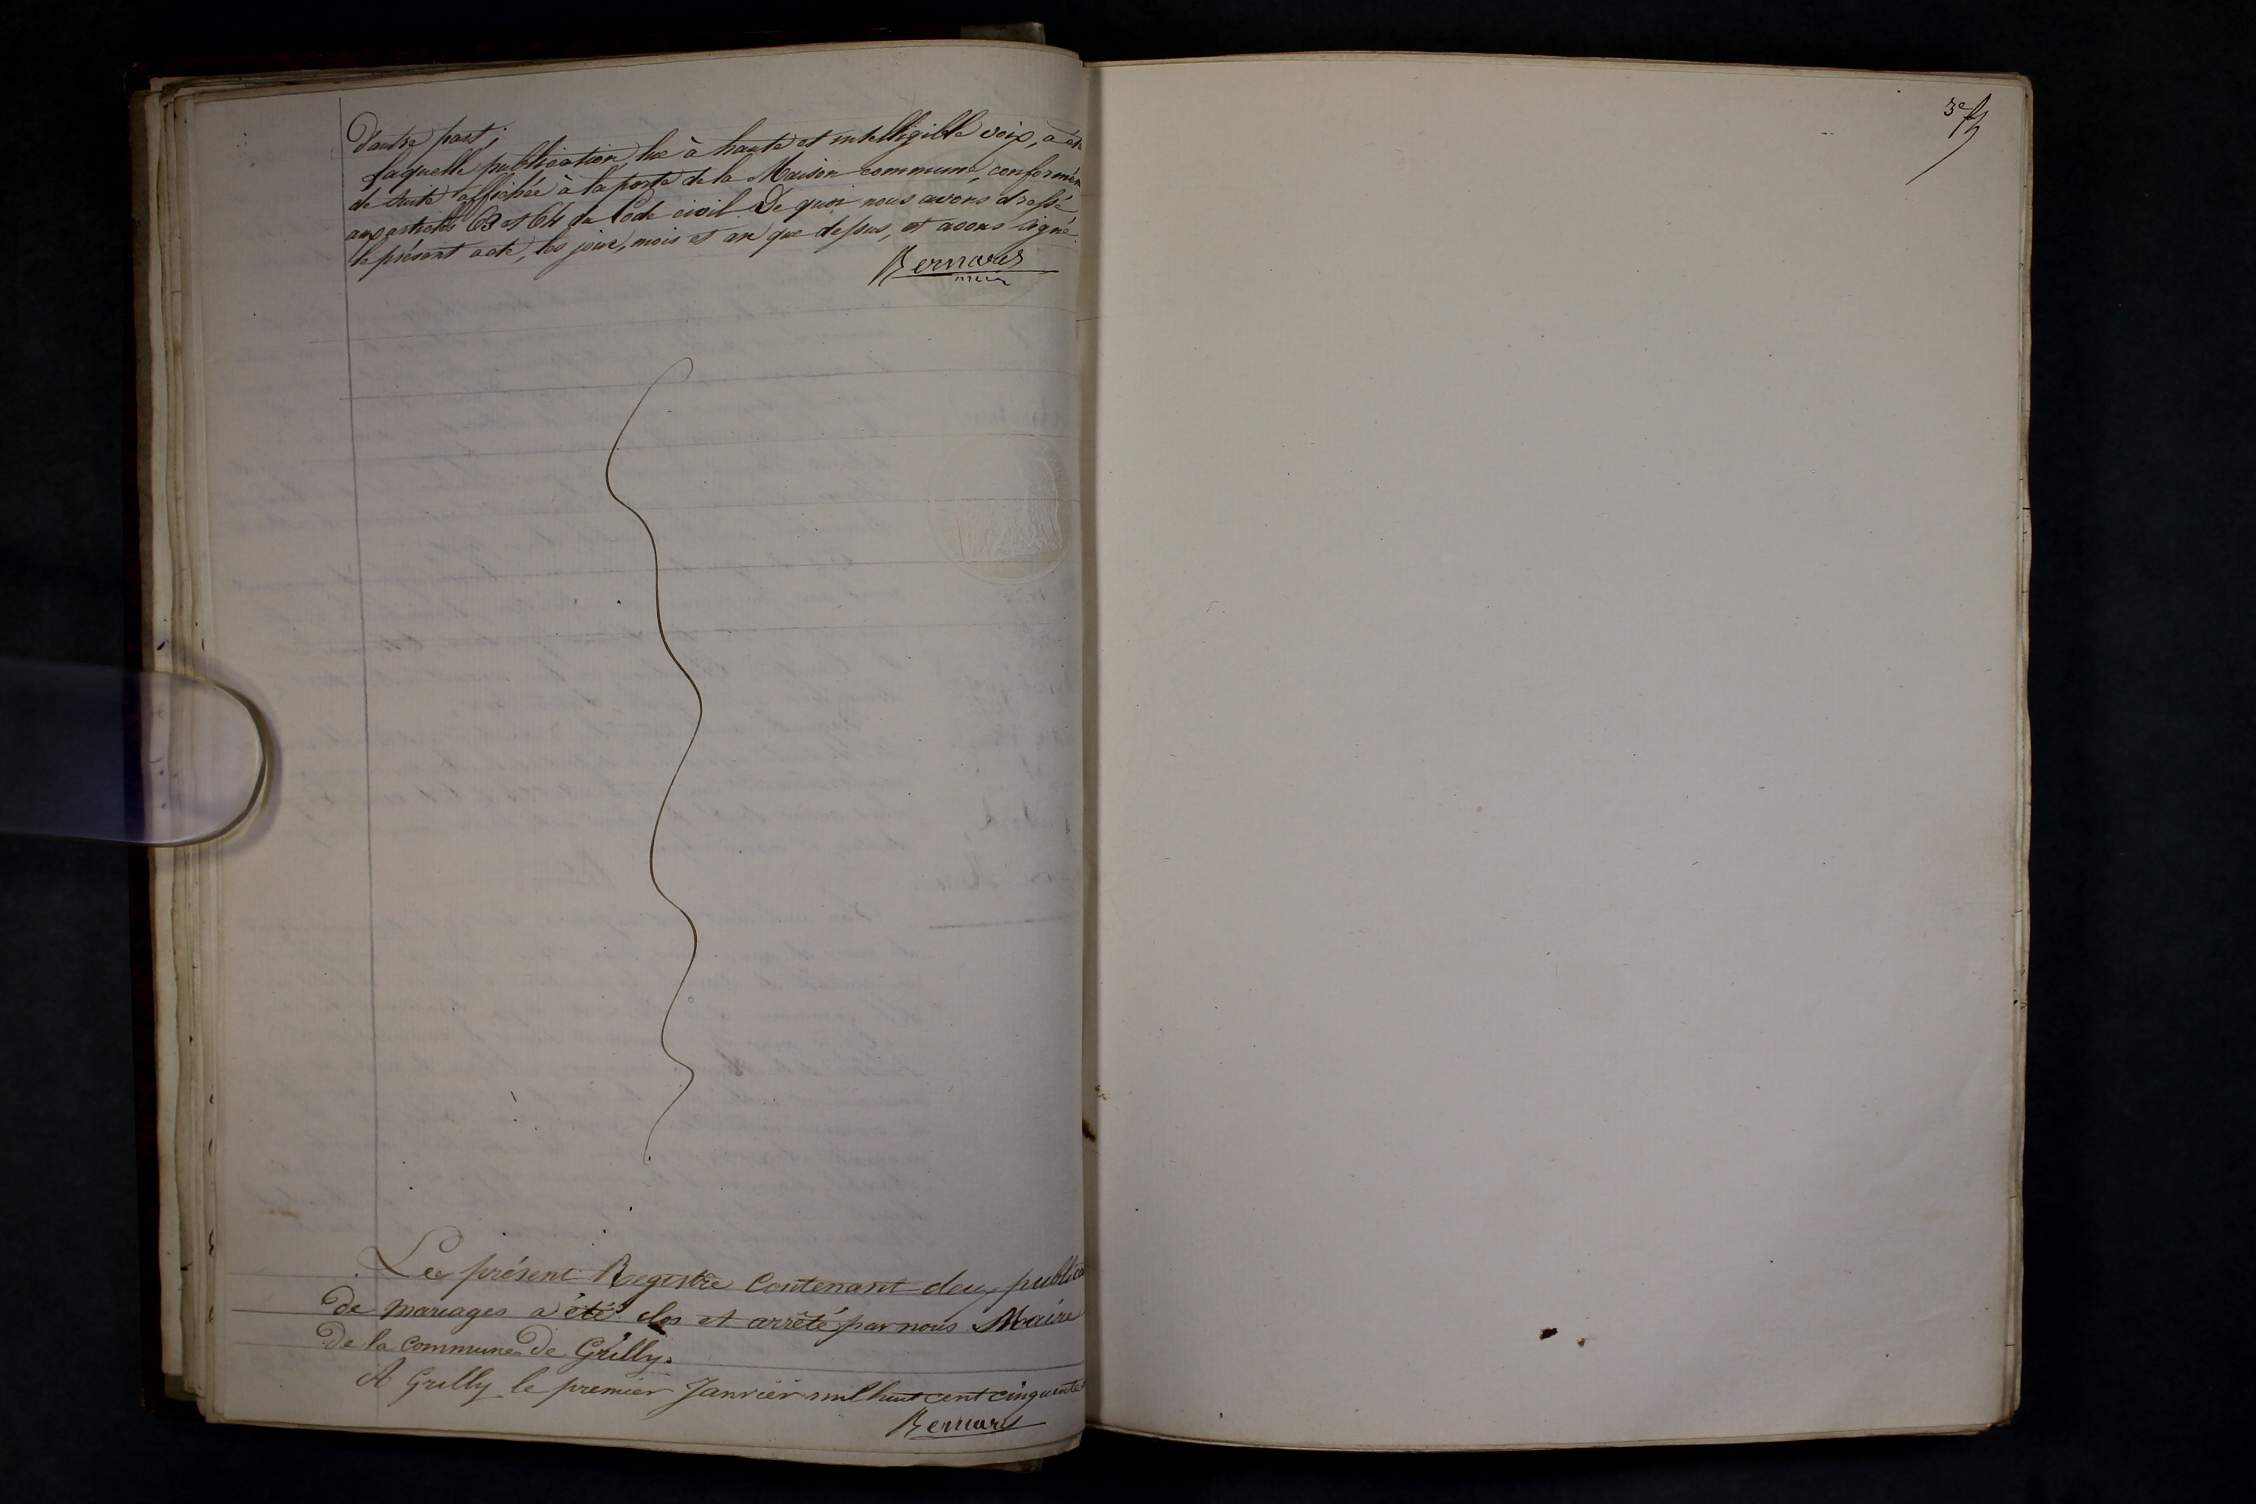 d'autre part;
Laquelle publication, lue à haute et intelligible voix, a été
de suite affichée à la porte de la Maison commune, conformém
aux articles 63 et 64 du Code civil. De quoi nous avons dressé
le présent acte, les jour, mois et an que dessus, et avons signé.
Bernard
Le présent Registre Contenant deux publica
de mariages a été clos et arrêté par nous Maire
de la commune de Grilly.
A Grilly le premier Janvier mil huit cent cinquante
Bernard
3e